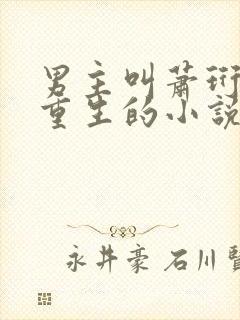 男主叫萧珩
重生的小說
永井豪 石川賢